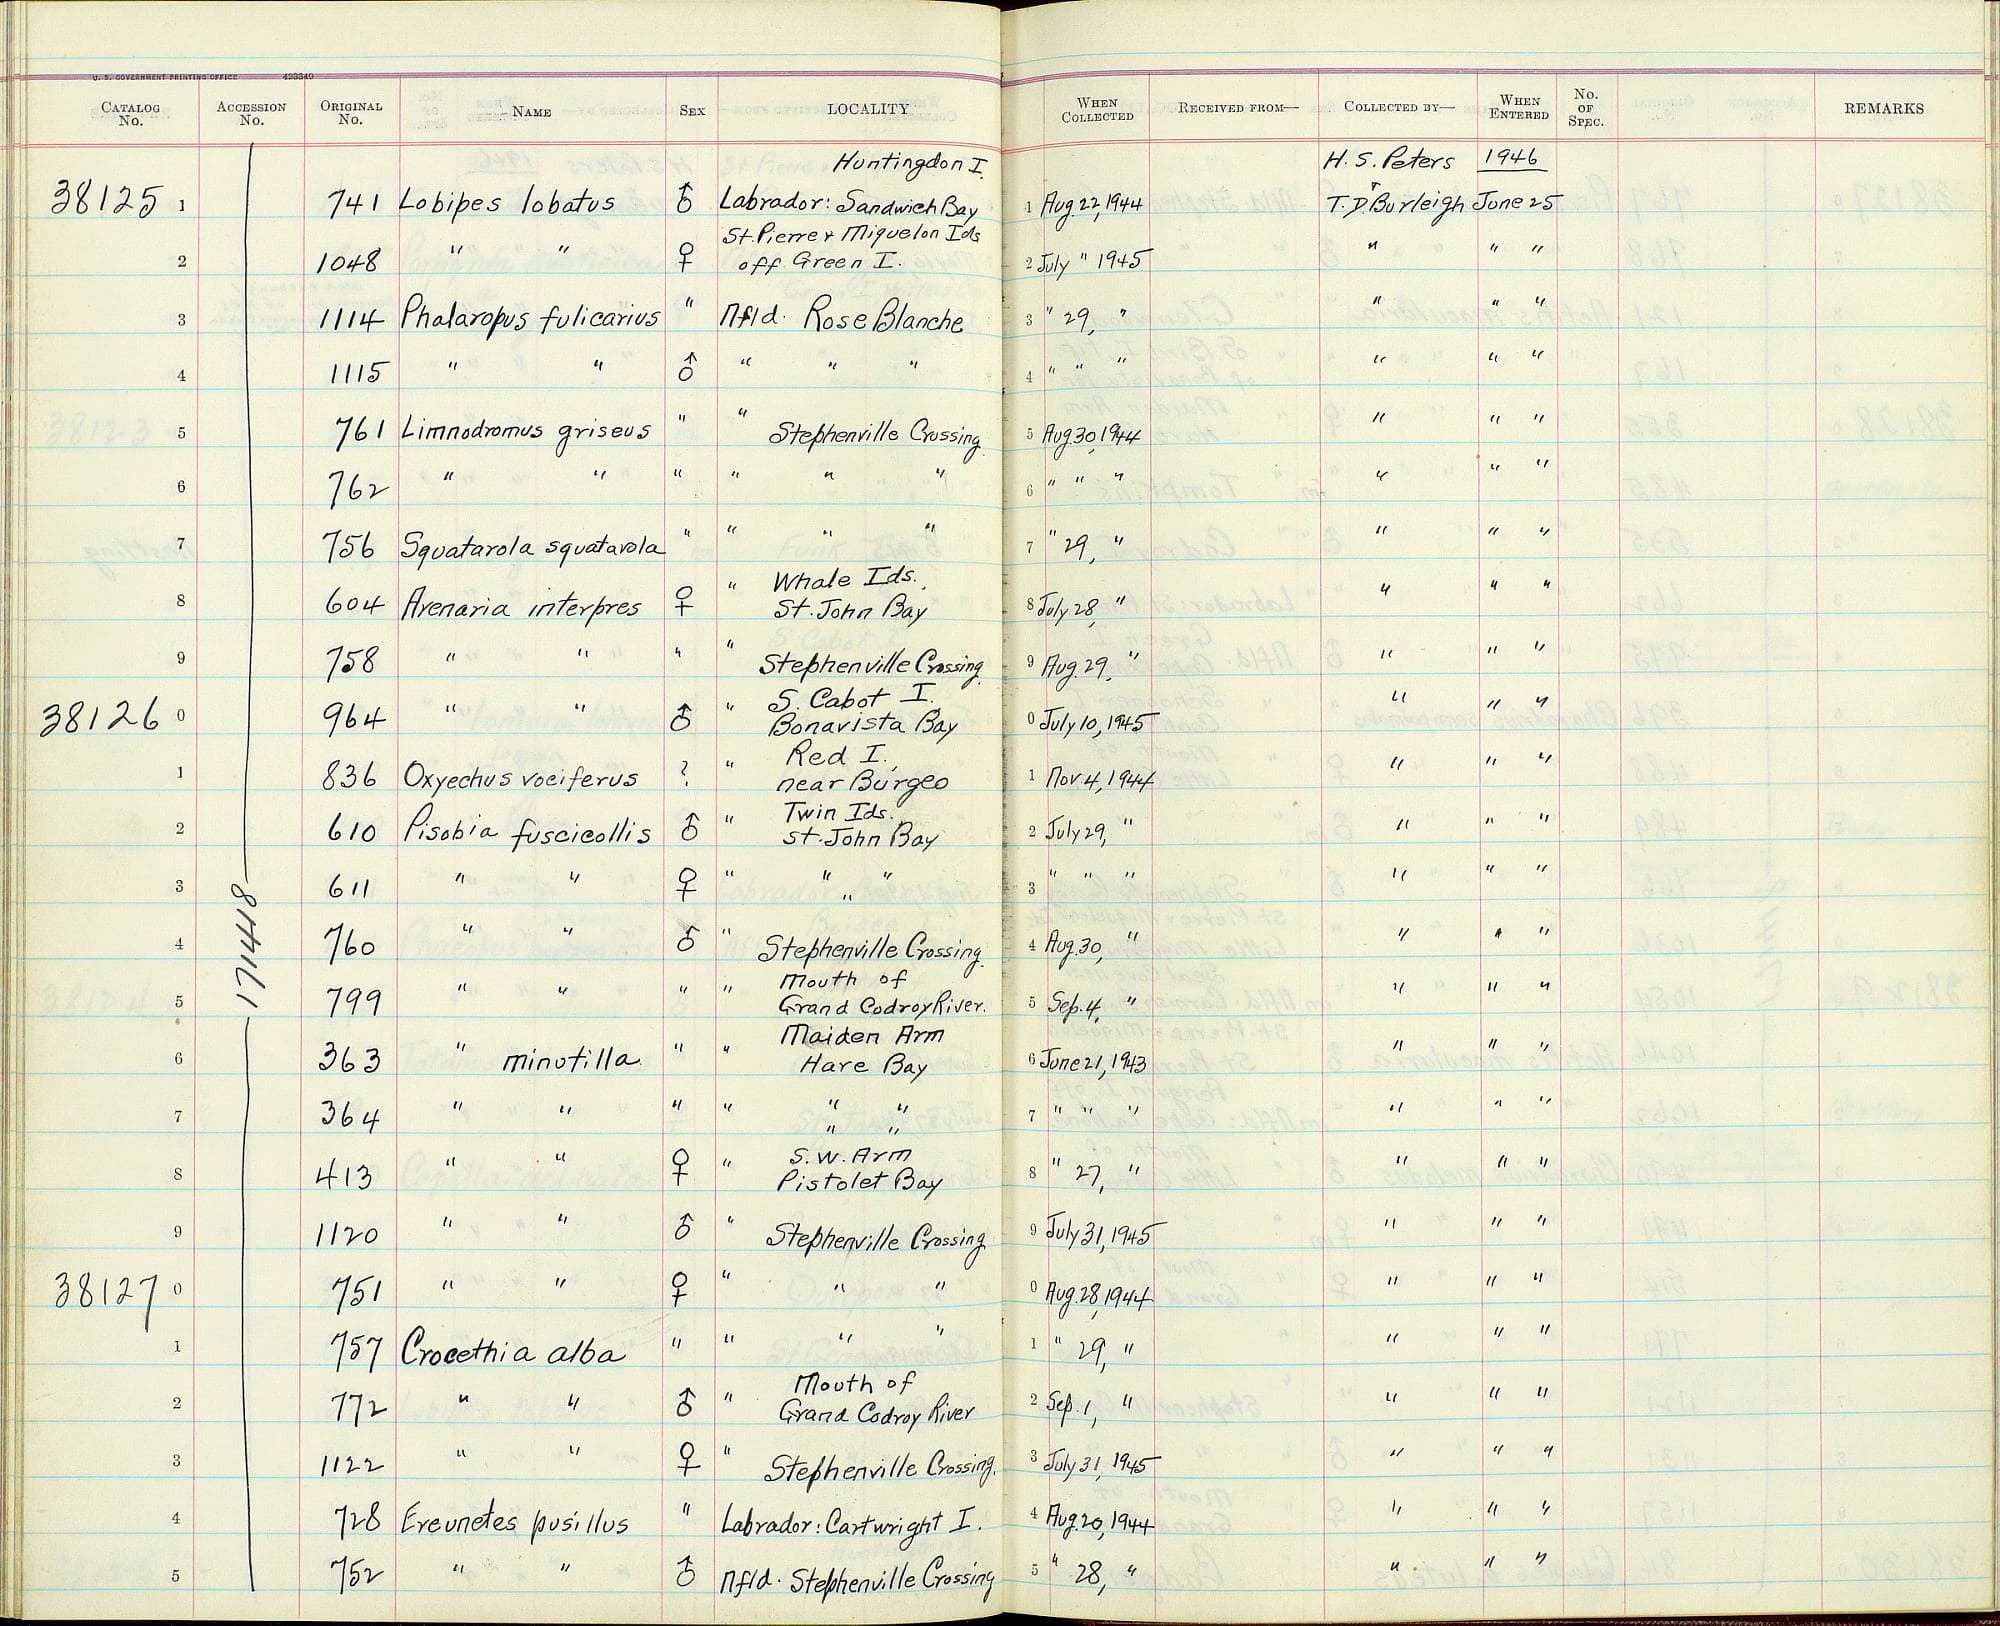 U. S. GOVERNMENT PRINTING OFFICE 423349
CATALOG No. ACCESSION No. ORIGINAL No. NAME SEX LOCALITY WHEN COLLECTED RECEIVED FROM— COLLECTED BY— WHEN ENTERED No. OF SPEC. REMARKS
Huntingdon I. H. S. Peters 1946
38125 1 741 Lobipes lobatus ♂ Labrador: Sandwich Bay 1 Aug. 22, 1944 T. D. Burleigh June 25
St. Pierre & Miquelon Ids
2 1048 " " ♀ off Green I. 2 July " 1945 " " "
3 1114 Phalaropus fulicarius " Nfld. Rose Blanche 3 " 29, " " " "
4 1115 " " ♂ " " " 4 " " " " " "
5 761 Limnodromus griseus " " Stephenville Crossing 5 Aug. 30, 1944 " " "
6 762 " " " " " " 6 " " " " " "
7 756 Squatarola squatarola " " " " 7 " 29, " " " "
Whale Ids.,
8 604 Arenaria interpres ♀ " St. John Bay 8 July 28, " " " "
9 758 " " " " Stephenville Crossing 9 Aug. 29, " " " "
S. Cabot I.
38126 0 964 " " ♂ " Bonavista Bay 0 July 10, 1945 " " "
Red I.,
1 836 Oxyechus vociferus ? " near Burgeo 1 Nov. 4, 1944 " " "
Twin Ids.
2 610 Pisobia fuscicollis ♂ " St. John Bay 2 July 29, " " " "
3 611 " " ♀ " " " " 3 " " " " " "
171448
4 760 " " ♂ " Stephenville Crossing 4 Aug. 30, " " " "
Mouth of
5 799 " " " " Grand Codroy River. 5 Sep. 4, " " " "
Maiden Arm
6 363 " minutilla " " Hare Bay 6 June 21, 1943 " " "
7 364 " " " " " " " " 7 " " " " " "
S. W. Arm
8 413 " " ♀ " Pistolet Bay 8 " 27, " " " "
9 1120 " " ♂ " Stephenville Crossing 9 July 31, 1945 " " "
38127 0 751 " " ♀ " " " 0 Aug. 28, 1944 " " "
1 757 Crocethia alba " " " " 1 " 29, " " " "
Mouth of
2 772 " " ♂ " Grand Codroy River 2 Sep. 1, " " " "
3 1122 " " ♀ " Stephenville Crossing. 3 July 31, 1945 " " "
4 728 Ereunetes pusillus " Labrador: Cartwright I. 4 Aug. 20, 1944 " " "
5 752 " " ♂ Nfld. Stephenville Crossing 5 " 28, " " " "